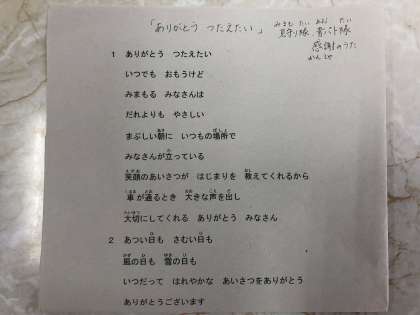 「ありがとう つたえたい 」
見守り隊、青パト隊
感謝のうた
1 ありがとう つたえたい
いつでも おもうけど
みまもる みなさんは
だれよりも やさしい
まぶしい朝に いつもの場所で
みなさんが立っている
笑顔のあいさつが はじまりを 教えてくれるから
車が通るとき 大きな声を出し
大切にしてくれる ありがとう みなさん
2 あつい日も さむい日も
風の日も 雪の日も
いつだって はれやかな あいさつをありがとう
ありがとうございます